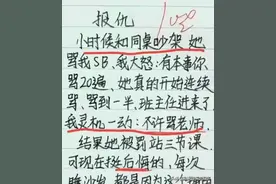 报仇
100
小时候和同桌吵架,她
骂我SB,我大怒:有本事你
骂20遍,她真的开始连续
骂,骂到一半,班主任进来了,
我灵机一动:不许骂老师,
结果她被罚站三节课,
可现在挺后悔的,每次
睡沙发,都是因为这